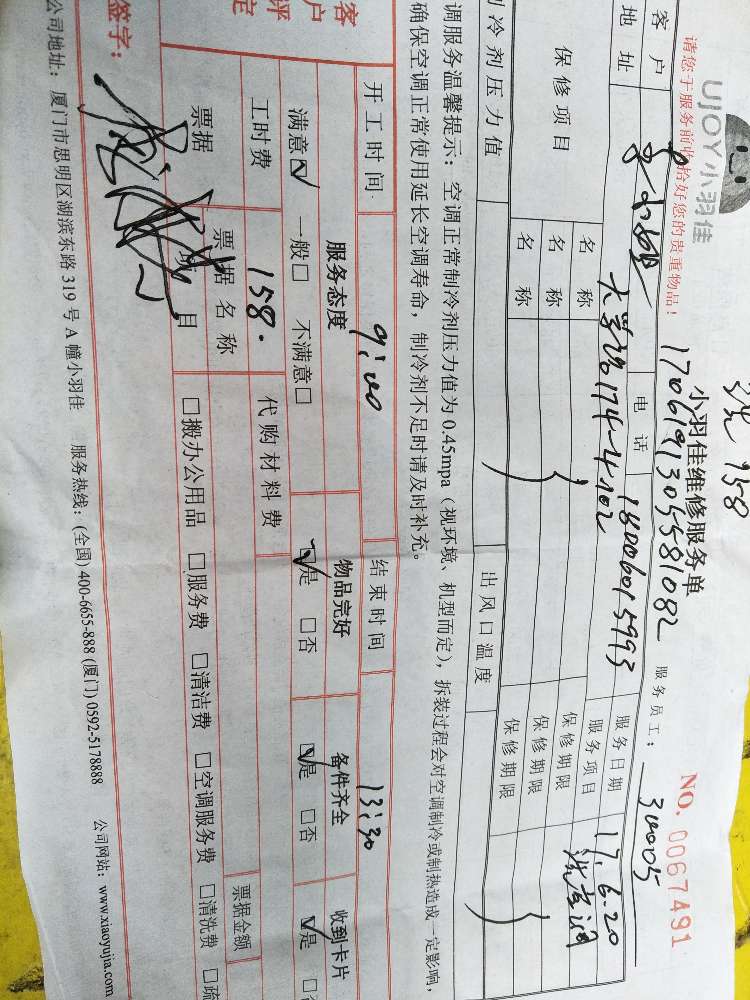 UJOY小羽佳
小羽佳维修服务单
NO. 0067491
请您于服务前收拾好您的贵重物品！
17061913055581082
服务员工：
客户
电话
18006015993
服务日期
17.6.20
地址
大学路174-4-102
服务项目
洗空调
保修项目
名称
保修期限
名称
保修期限
名称
保修期限
制冷剂压力值
出风口温度
调服务温馨提示：空调正常制冷剂压力值为0.45mpa（视环境、机型而定），拆装过程会对空调制冷或制热造成一定影响，
确保空调正常使用延长空调寿命，制冷剂不足时请及时补充。
开工时间
9:00
结束时间
13:30
客户评定
服务态度
物品完好
备件齐全
收到卡片
满意☑ 一般□ 不满意□
☑是 □否
☑是 □否
☑是 □否
工时费
158.
代购材料费
票据
票据名称
票据金额
项目
□搬办公用品 □服务费 □清洁费 □空调服务费 □清洗费 □疏
签字：
公司地址：厦门市思明区湖滨东路319号A幢小羽佳 服务热线：(全国) 400-6655-888 (厦门) 0592-5178888 公司网站：www.xiaoyujia.com